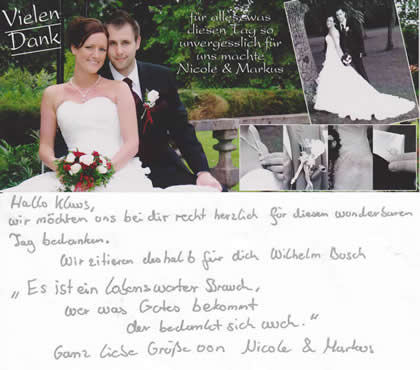 Vielen
Dank
für alles, was
diesen Tag so
unvergesslich für
uns machte
Nicole & Markus
Hallo Klaus,
wir möchten uns bei dir recht herzlich für diesen wunderbaren
Tag bedanken.
Wir zitieren deshalb für dich Wilhelm Busch
„Es ist ein lobenswerter Brauch,
wer was Gutes bekommt
der bedankt sich auch."
Ganz liebe Grüße von Nicole & Markus